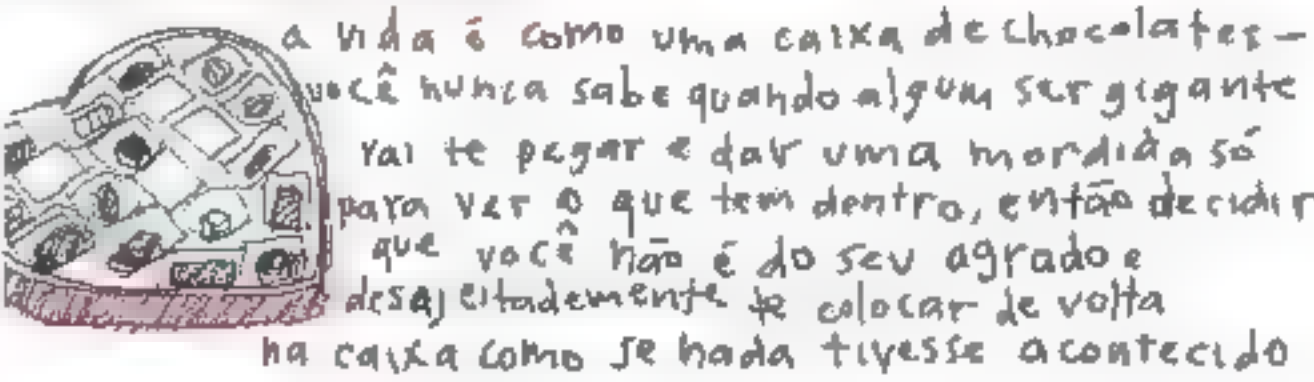 a vida é como uma caixa de chocolates—
você nunca sabe quando algum ser gigante
vai te pegar e dar uma mordida só
para ver o que tem dentro, então decidir
que você não é do seu agrado e
desajeitademente te colocar de volta
na caixa como se nada tivesse acontecido